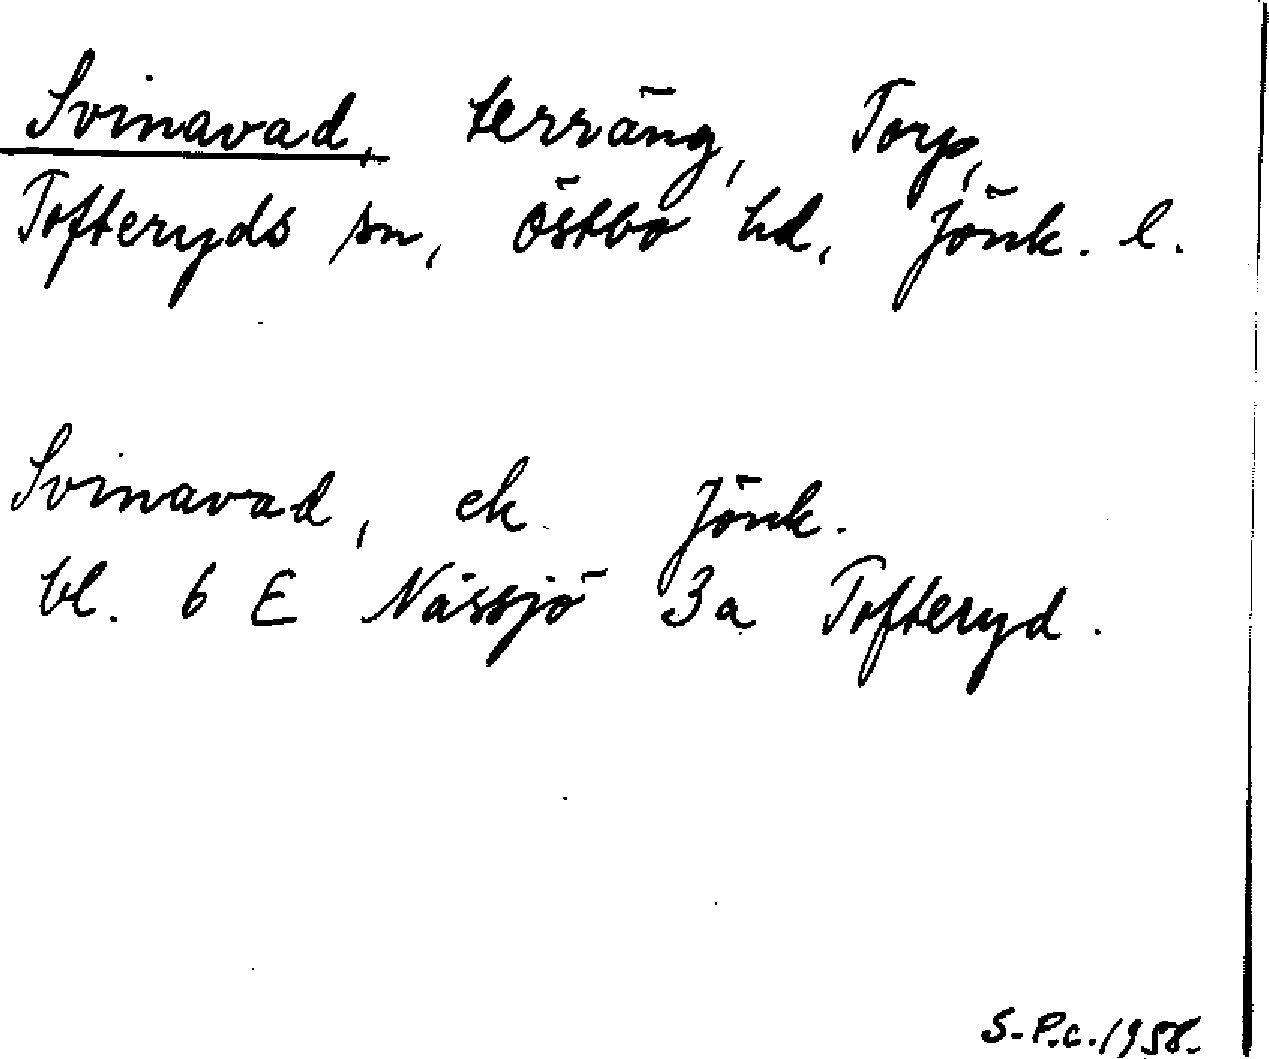 Svinavad, terräng, Torp,
Tofteryds sn, Östbo hd, Jönk. l.
Svinavad, ek. Jönk.
bl. 6 E Nässjö 3a Tofteryd.
S-P.c. 1958.